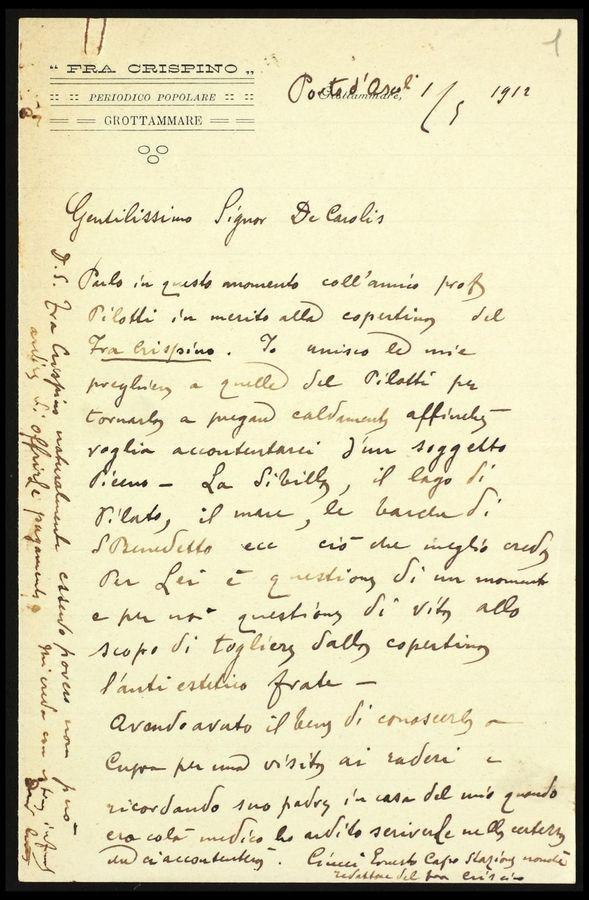 1
“ FRA CRISPINO „
:: :: PERIODICO POPOLARE :: ::
GROTTAMMARE
Grottammare,
Porto d'Ascoli 1/5 1912
Gentilissimo Signor De Carolis
Parlo in questo momento coll'amico prof
Pilotti in merito alla copertina del
Fra Crispino. Io unisco le mie
preghiere a quelle del Pilotti per
tornarla a pregare caldamente affinché
voglia accontentarci d'un soggetto
Piceno - La Sibilla, il lago di
Pilato, il mare, le barche di
S Benedetto ecc ciò che meglio creda
Per Lei è questione di un momento
e per noi questione di vita allo
scopo di togliere dalla copertina
l'anti estetico frate -
Avendo avuto il bene di conoscerla a
Cupra per una visita ai ruderi e
ricordando suo padre in casa del mio quando
era colà medico ho ardito scriverle nella certezza
che ci accontenterà. Ciucci Ernesto Capo Stazione nonché
redattore del Fra Crispino
P.S. Fra Crispino naturalmente essendo povero non può
ardire di offrirle pagamento
Mi creda con